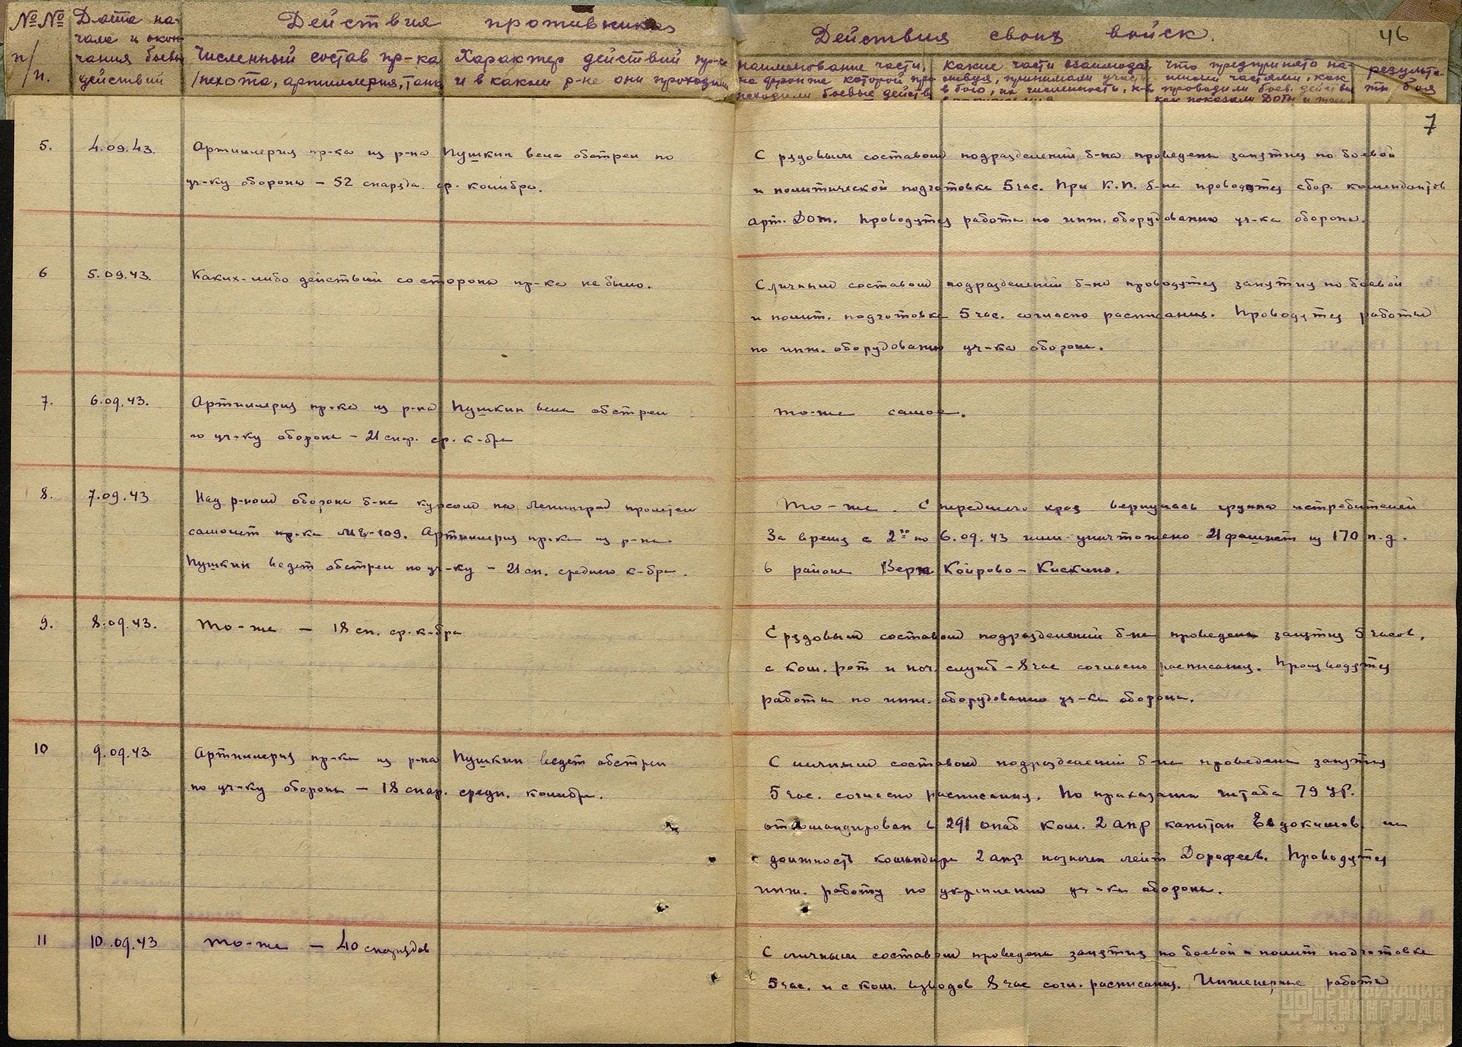 №№ п/п.
Дата на-
чала и окон-
чания боевы
действий
Действия противника
Численный состав пр-ка
/пехота, артиллерия, танк
Характер действий пр-ка
и в каком р-не они проходили
Действия своих войск.
46
наименование части,
на фронте которой про
исходили боевые действ
Какие части взаимодей
ствуя, принимали участ
в бою, их численность, н-в
что предпринято на-
шими частями, как
проводили боев. действи
как показали ДОТы и
результа-
ты боя
7
5.
4.09.43.
Артиллерия пр-ка из р-на Пушкин вела обстрел по
уч-ку обороны – 52 снаряда ср. калибра.
С рядовым составом подразделений б-на проведены занятия по боевой
и политической подготовке 5 час. При К.П. б-на проводятся сбор. комендантов
Арт. ДОТ. Проводятся работы по инж. оборудованию уч-ка обороны.
6
5.09.43.
Каких-либо действий со стороны пр-ка не было.
С личным составом подразделений б-на проводятся занятия по боевой
и полит. подготовке 5 час. согласно расписания. Проводятся работы
по инж. оборудованию уч-ка обороны.
7.
6.09.43.
Артиллерия пр-ка из р-на Пушкин вела обстрел
по уч-ку обороны – 21 снар. ср. к-бра
То-же самое.
8.
7.09.43
Над р-ном обороны б-на курсом на Ленинград пролетел
самолет пр-ка МЕ-109. Артиллерия пр-ка из р-на
Пушкин ведет обстрел по уч-ку – 21 сн. среднего к-бра.
То-же. С переднего края вернулась группа истребителей
За время с 2го по 6.09.43 ими уничтожено 21 фашист из 170 п.д.
в районе Верх Койрово – Кискино.
9.
8.09.43.
То-же – 18 сн. ср. к-бра
С рядовым составом подразделений б-на проведены занятия 5 часов,
с ком. рот и нач. служб – 8 час согласно расписания. Производятся
работы по инж. оборудованию уч-ка обороны.
10
9.09.43.
Артиллерия пр-ка из р-на Пушкин ведет обстрел
по уч-ку обороны – 18 снар. средн. калибра.
С личным составом подразделений б-на проведены занятия
5 час. согласно расписания. По приказанию штаба 79 УР.
откомандирован в 291 опаб ком. 2 апр капитан Евдокимов, на
должность командира 2 апр назначен лейт Дорофеев. Проводятся
инж. работы по укреплению уч-ка обороны.
11
10.09.43
То-же – 40 снарядов
С личным составом проведены занятия по боевой и полит подготовке
5 час. и с ком. взводов 8 час согл. расписания. Инженерные работы
ФОРТИФИКАЦИЯ
ЛЕНИНГРАДА